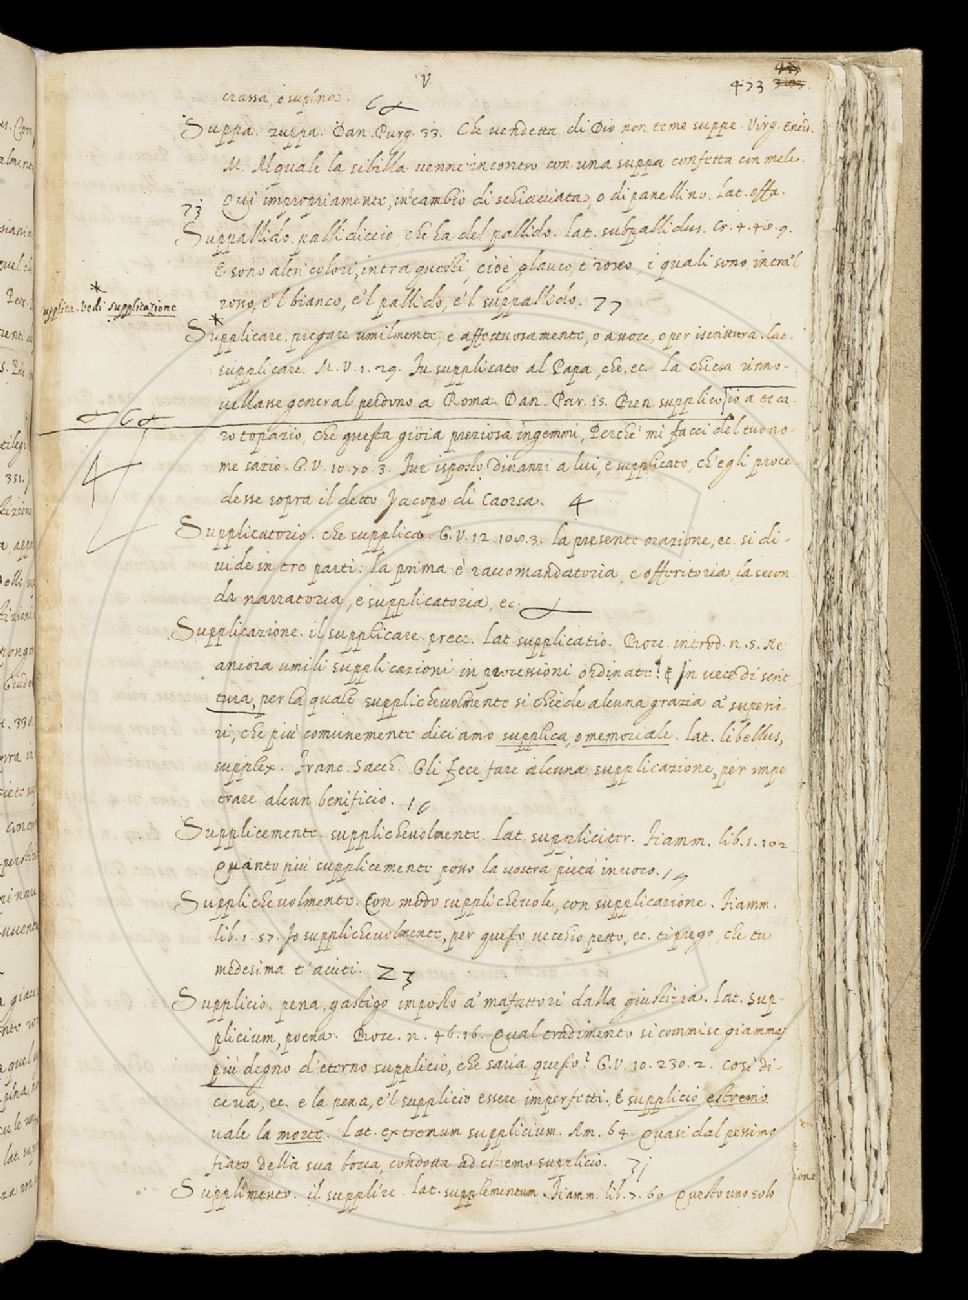 V
473
crassa, e supina. 68
Suppa. zuppa. Dan. Purg. 33. Che vendetta di Dio non teme suppe. Virg. Eneid.
M. Al quale la sibilla venne incontro con una suppa confetta con mele.
Qui impropriamente, in cambio di schiacciata, o di panellino. Lat. offa.
73
Suppallido. pallidiccio, che ha del pallido. Lat. subpallidus. Cr. 4. 48. 9.
E sono altri colori, intra quelli, cioè glauco, e roseo, i quali sono intra 'l
rosso, e 'l bianco, e 'l pallido, e 'l suppallido. 77
supplica. vedi supplicazione
Supplicare. pregare umilmente, e affettuosamente, o a voce, o per iscrittura. Lat.
supplicare. M. V. 1. 29. Fu supplicato al Papa, che, ec. la chiesa rinno-
vellasse general perdono a Roma. Dan. Par. 15. Ben supplico io a te vi-
vo topazio, che questa gioia preziosa ingemmi, Perchè mi facci del tuo no-
me sazio. G. V. 10. 70. 3. Fue isposto dinanzi a lui, e supplicato, ch'egli proce-
desse sopra il detto Jacopo di Caorsa. 4
Supplicatorio. che supplica. G. V. 12. 108. 3. la presente orazione, ec. si di-
vide in tre parti: la prima è raccomandatoria, e offeritoria, la secon-
da narratoria, e supplicatoria, ec.
Supplicazione. il supplicare. prece. Lat. supplicatio. Boce. introd. n. 5. Ne
ancora umili supplicazioni in processioni ordinate. E In vece di scrit
tura, per la quale supplichevolmente si chiede alcuna grazia a' superio-
ri, che più comunemente diciamo supplica, o memoriale. Lat. libellus,
supplex. Franc. Sacch. Gli fece fare alcuna supplicazione, per impe
trare alcun benificio. 16
Supplicemente. supplichevolmente. Lat. suppliciter. Fiamm. lib. 1. 102
Quanto più supplicemente posso la vostra pietà invoco. 19
Supplichevolmente. Con modo supplichevole, con supplicazione. Fiamm.
lib. 1. 57. Io supplichevolmente, per questo vecchio petto, ec. ti priego, che tu
medesima t'aiuti. 23
Supplicio. pena, gastigo imposto a' malfattori dalla giustizia. Lat. sup-
plicium, poena. Bocc. n. 46. 16. Qual tradimento si commise giammai
più degno d'eterno supplicio, che saria questo? G. V. 10. 230. 2. Così di-
ceva, ec. e la pena, e 'l supplicio essere imperfetti. E supplicio estremo
vale la morte. Lat. extremum supplicium. Am. 64. Quasi dal pessimo
fiato della sua bocca, condotta ad estremo supplicio. 31
Supplimento. il supplire. Lat. supplementum. Fiamm. lib. 7. 60 Questo uno solo